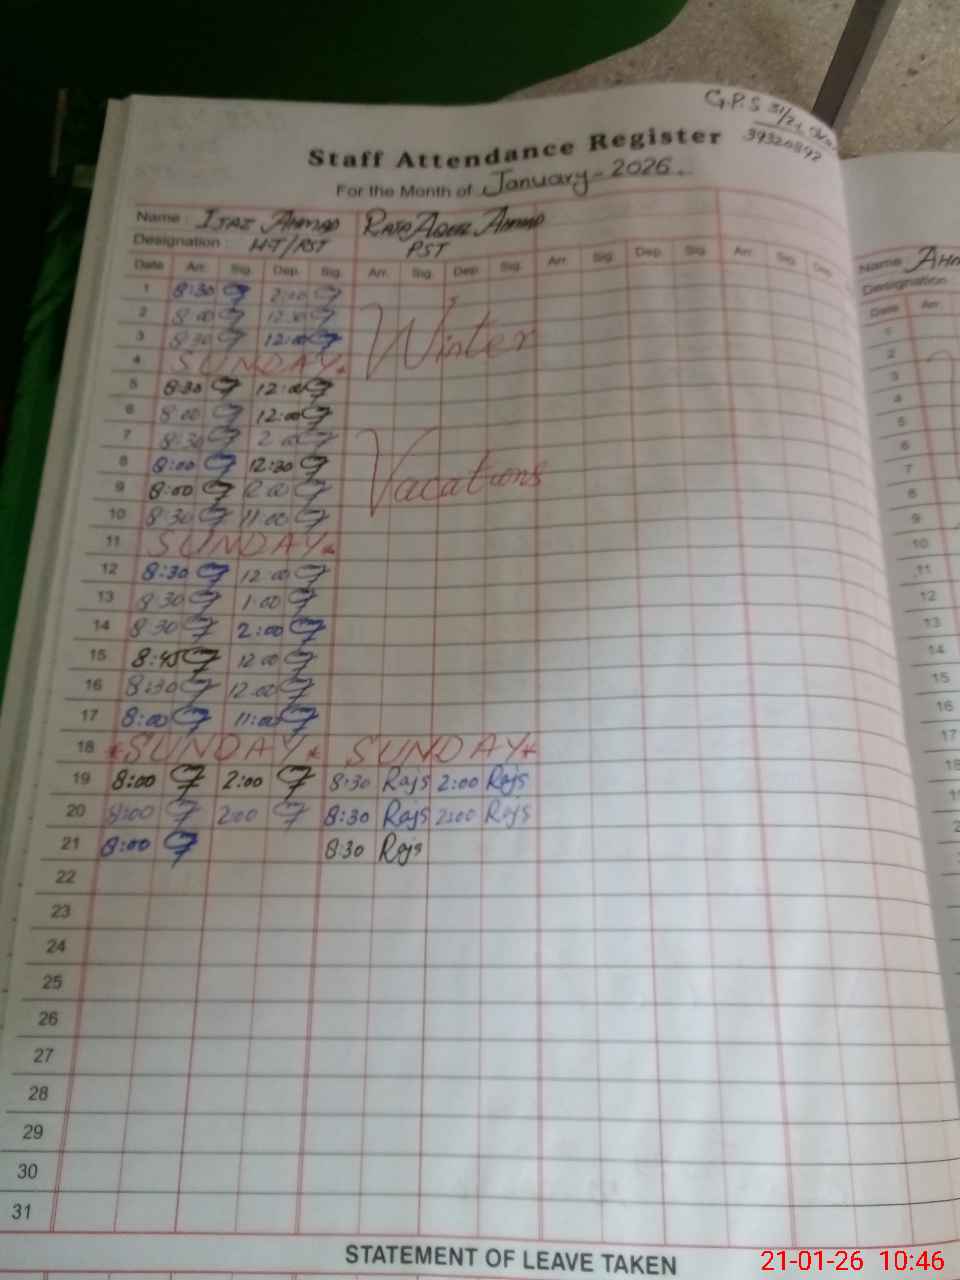 G.P.S 31/2L
39320892
Staff Attendance Register
For the Month of January - 2026.
Name : IJAZ AHMAD
Designation : HT/PST PST
Date Arr. Sig. Dep. Sig. Arr. Sig. Dep. Sig. Arr. Sig. Dep. Sig. Arr. Sig. Dep.
1 8:30 2:00
2 8:00 12:30
3 8:30 12:00
Winter
4 SUNDAY
5 8:30 12:00
6 8:00 12:00
7 8:30 2:00
8 8:00 12:30
9 8:00 2:00
Vacations
10 8:30 11:00
11 SUNDAY
12 8:30 12:00
13 8:30 1:00
14 8:30 2:00
15 8:45 12:00
16 8:30 12:00
17 8:00 11:00
18 *SUNDAY* SUNDAY*
19 8:00 2:00 8:30 Rajs 2:00 Rajs
20 8:00 2:00 8:30 Rajs 2:00 Rajs
21 8:00 8:30 Rajs
22
23
24
25
26
27
28
29
30
31
STATEMENT OF LEAVE TAKEN
Name
Designation
Date Arr.
1
2
3
4
5
6
7
8
9
10
11
12
13
14
15
16
17
18
21-01-26 10:46